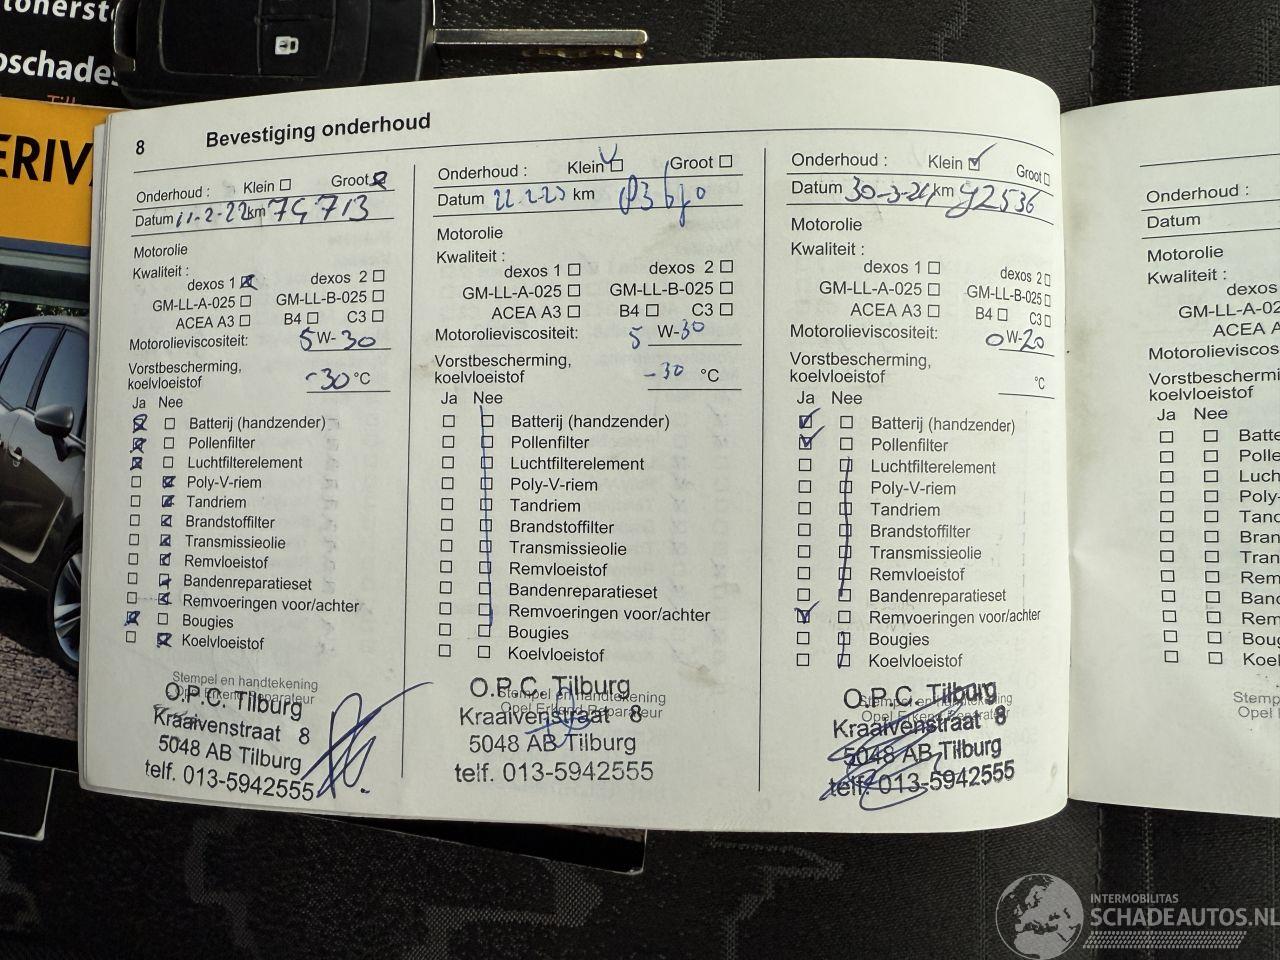 oschades
ERIV
8 Bevestiging onderhoud
Onderhoud : Klein Groot
Datum 11-2-22 km 74 713
Motorolie
Kwaliteit :
dexos 1 dexos 2
GM-LL-A-025 GM-LL-B-025
ACEA A3 B4 C3
Motorolieviscositeit: 5 W- 30
Vorstbescherming,
koelvloeistof -30 °C
Ja Nee
Batterij (handzender)
Pollenfilter
Luchtfilterelement
Poly-V-riem
Tandriem
Brandstoffilter
Transmissieolie
Remvloeistof
Bandenreparatieset
Remvoeringen voor/achter
Bougies
Koelvloeistof
Stempel en handtekening
Opel Erkend Reparateur
O.P.C. Tilburg
Kraaivenstraat 8
5048 AB Tilburg
telf. 013-5942555
Onderhoud : Klein Groot
Datum 22-2-23 km
Motorolie
Kwaliteit :
dexos 1 dexos 2
GM-LL-A-025 GM-LL-B-025
ACEA A3 B4 C3
Motorolieviscositeit: 5 W-30
Vorstbescherming,
koelvloeistof -30 °C
Ja Nee
Batterij (handzender)
Pollenfilter
Luchtfilterelement
Poly-V-riem
Tandriem
Brandstoffilter
Transmissieolie
Remvloeistof
Bandenreparatieset
Remvoeringen voor/achter
Bougies
Koelvloeistof
Stempel en handtekening
Opel Erkend Reparateur
O.P.C. Tilburg
Kraaivenstraat 8
5048 AB Tilburg
telf. 013-5942555
Onderhoud : Klein Groot
Datum 30-3-24 km 92536
Motorolie
Kwaliteit :
dexos 1 dexos 2
GM-LL-A-025 GM-LL-B-025
ACEA A3 B4 C3
Motorolieviscositeit: 0 W-20
Vorstbescherming,
koelvloeistof °C
Ja Nee
Batterij (handzender)
Pollenfilter
Luchtfilterelement
Poly-V-riem
Tandriem
Brandstoffilter
Transmissieolie
Remvloeistof
Bandenreparatieset
Remvoeringen voor/achter
Bougies
Koelvloeistof
Stempel en handtekening
Opel Erkend Reparateur
O.P.C. Tilburg
Kraaivenstraat 8
5048 AB Tilburg
telf. 013-5942555
Onderhoud :
Datum
Motorolie
Kwaliteit :
dexos
GM-LL-A-02
ACEA A
Motorolieviscos
Vorstbeschermi
koelvloeistof
Ja Nee
Batte
Polle
Luch
Poly-
Tand
Bran
Tran
Rem
Band
Rem
Boug
Koel
Stemp
Opel
INTERMOBILITAS
SCHADEAUTOS.NL